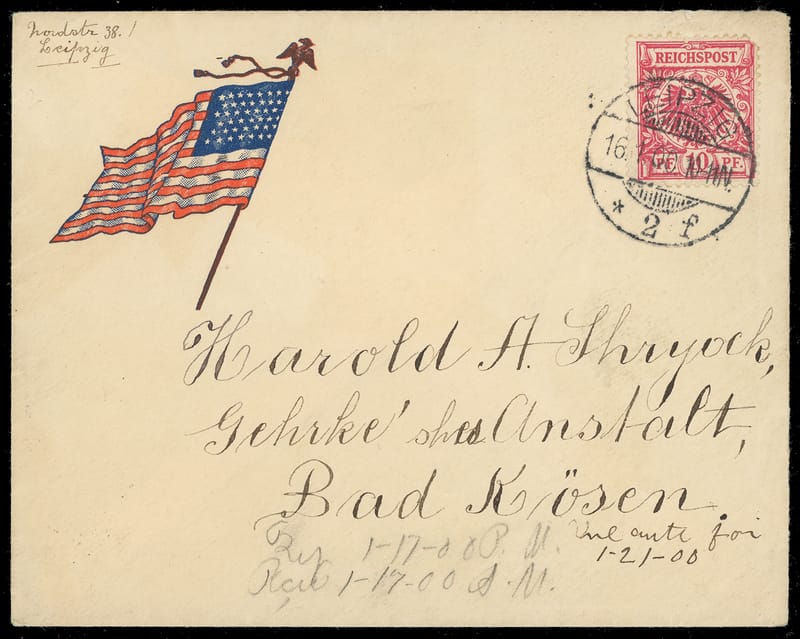 Nordstr 38.
Leipzig
REICHSPOST
PF. 10 PF.
LEIPZIG
16.1.00 10-11N.
* 2 f
Harold A. Shryock,
Gehrke' sches Anstalt,
Bad Kösen.
1-17-00 P. M.
1-17-00 A. M.
for
1-21-00